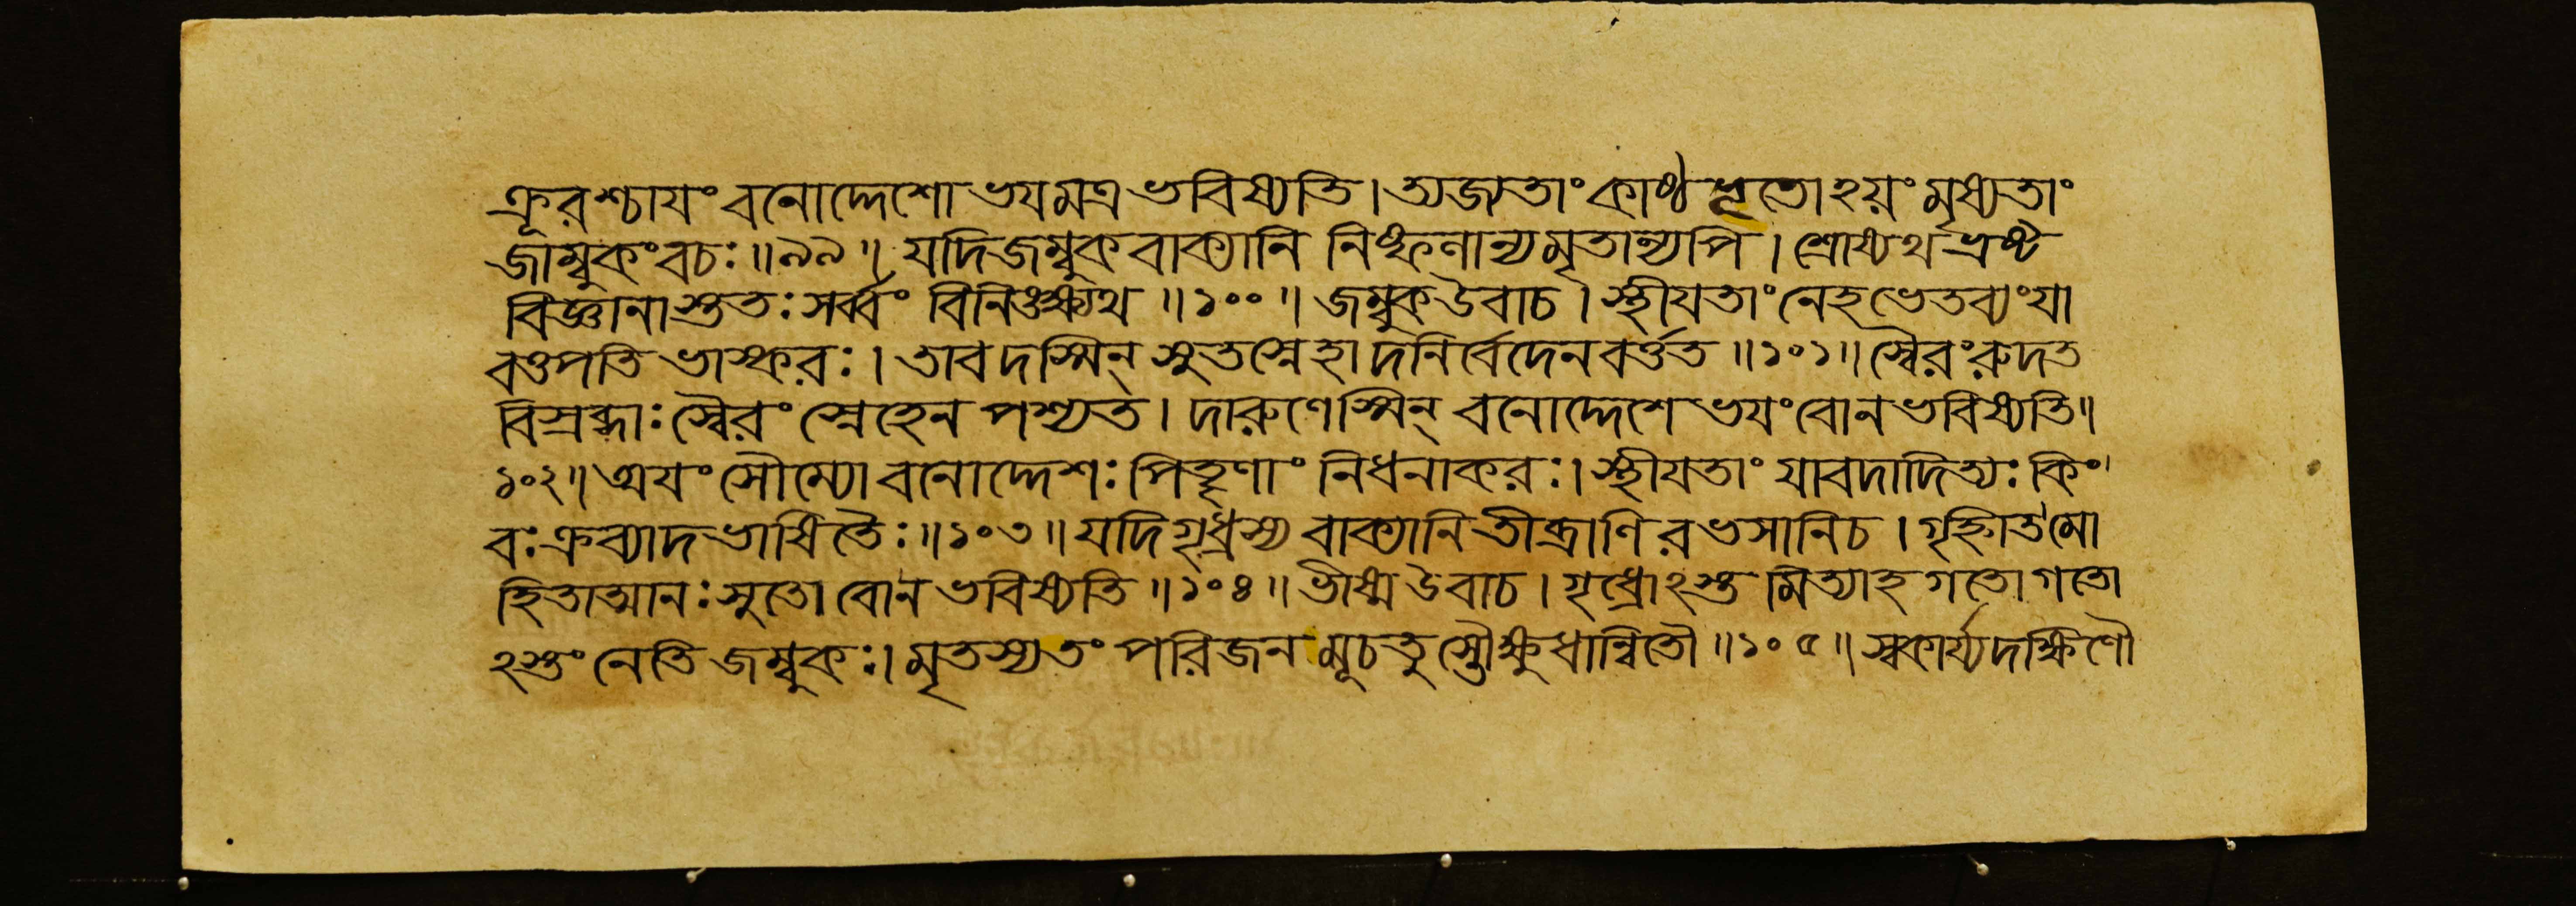 ক্রূরশ্চাযং বনোদ্দেশো ভযমত্র ভবিষ্যতি। ত্যজ্যতাং কাষ্ঠভূতোঽয়ং মৃষ্যতাং
জাম্বুকং বচঃ॥৯৯॥ যদি জম্বুকবাক্যানি নিষ্ফলান্যমৃতান্যপি। শ্রোষ্যথ ভ্রষ্ট
বিজ্ঞানাস্ততঃ সর্ব্বং বিনিঙক্ষ্যথ॥১০০॥ জম্বুক উবাচ। স্থীযতাং নেহ ভেতব্যং যা
বত্তপতি ভাস্করঃ। তাবদস্মিন্ সুতস্নেহাদনির্বেদেন বর্ত্তত॥১০১॥ স্বৈরং রুদত
বিস্রব্ধাঃ স্বৈরং স্নেহেন পশ্যত। দারুণেস্মিন্ বনোদ্দেশে ভযং বো ন ভবিষ্যতি॥
১০২॥ অযং সৌম্যো বনোদ্দেশঃ পিতৄণাং নিধনাকরঃ। স্থীযতাং যাবদাদিত্যঃ কিং
বঃ ক্রব্যাদভাষিতৈঃ॥১০৩॥ যদি গৃধ্রস্য বাক্যানি তীব্রাণি রভসানি চ। গৃহ্নীত মো
হিতাত্মানঃ সুতো বো ন ভবিষ্যতি॥১০৪॥ ভীষ্ম উবাচ। গৃধ্রোঽস্তমিত্যাহ গতো গতো
ঽস্তং নেতি জম্বুকঃ। মৃতস্য তং পরিজনমূচতুস্তৌ ক্ষুধান্বিতৌ॥১০৫॥ স্বকার্য্যদক্ষিণৌ